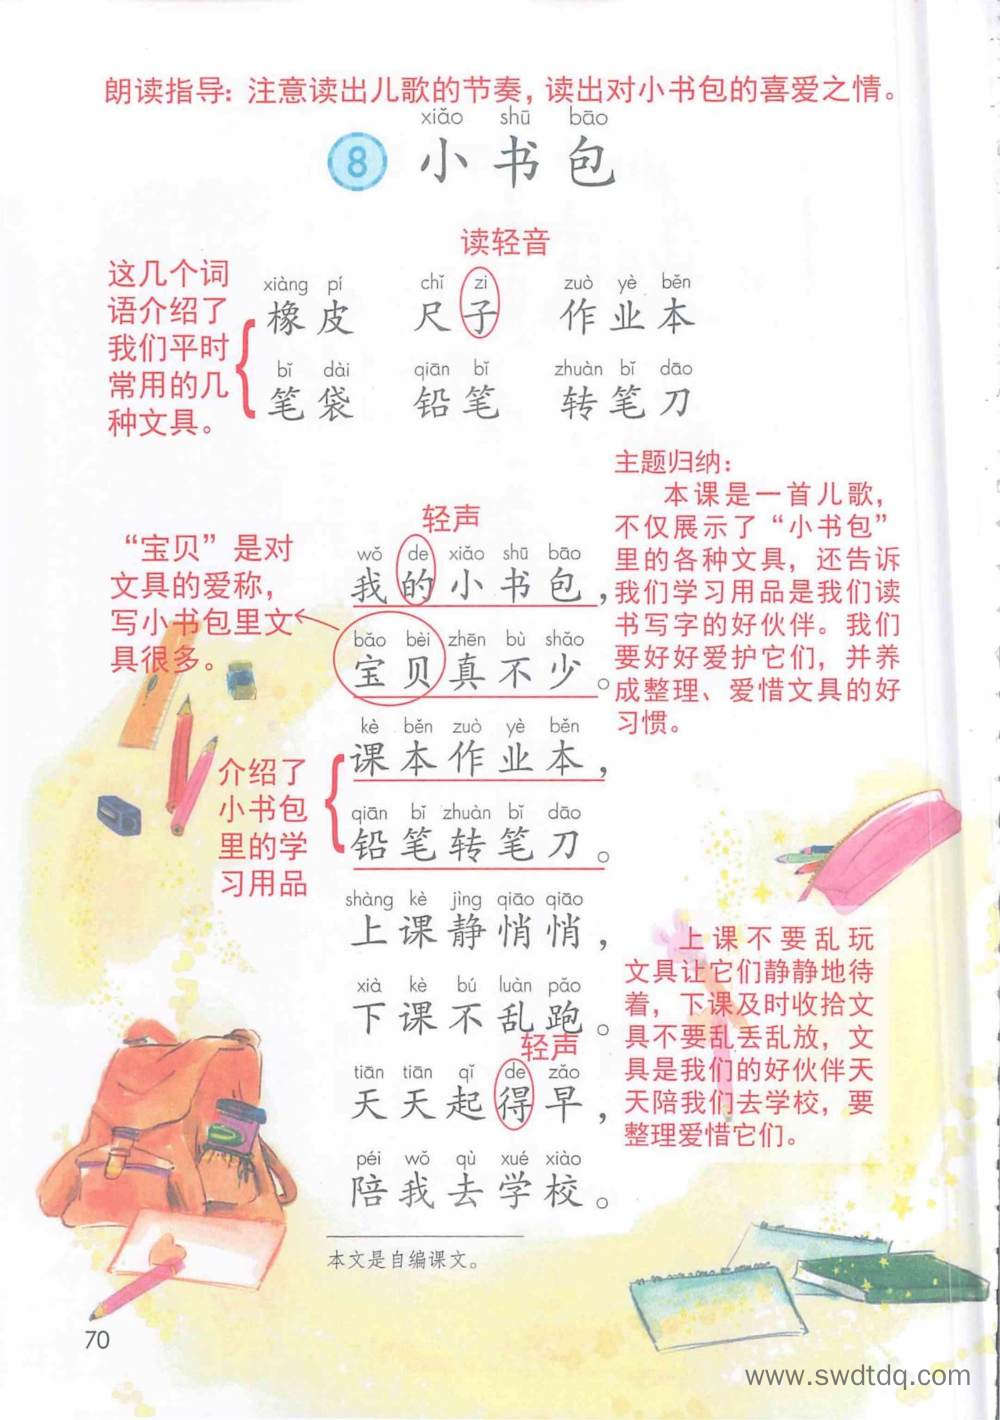 朗读指导：注意读出儿歌的节奏，读出对小书包的喜爱之情。
xiǎo shū bāo
8 小书包
读轻音
这几个词
语介绍了
我们平时
常用的几
种文具。
xiàng pí chǐ zi zuò yè běn
橡皮 尺子 作业本
bǐ dài qiān bǐ zhuàn bǐ dāo
笔袋 铅笔 转笔刀
主题归纳：
本课是一首儿歌，
不仅展示了“小书包”
里的各种文具，还告诉
我们学习用品是我们读
书写字的好伙伴。我们
要好好爱护它们，并养
成整理、爱惜文具的好
习惯。
轻声
“宝贝”是对
文具的爱称，
写小书包里文
具很多。
wǒ de xiǎo shū bāo
我的小书包，
bǎo bèi zhēn bù shǎo
宝贝真不少。
kè běn zuò yè běn
课本作业本，
qiān bǐ zhuàn bǐ dāo
铅笔转笔刀。
介绍了
小书包
里的学
习用品
shàng kè jìng qiāo qiāo
上课静悄悄，
xià kè bú luàn pǎo
下课不乱跑。
轻声
tiān tiān qǐ de zǎo
天天起得早，
péi wǒ qù xué xiào
陪我去学校。
上课不要乱玩
文具让它们静静地待
着，下课及时收拾文
具不要乱丢乱放，文
具是我们的好伙伴天
天陪我们去学校，要
整理爱惜它们。
本文是自编课文。
70
www.swdtdq.com